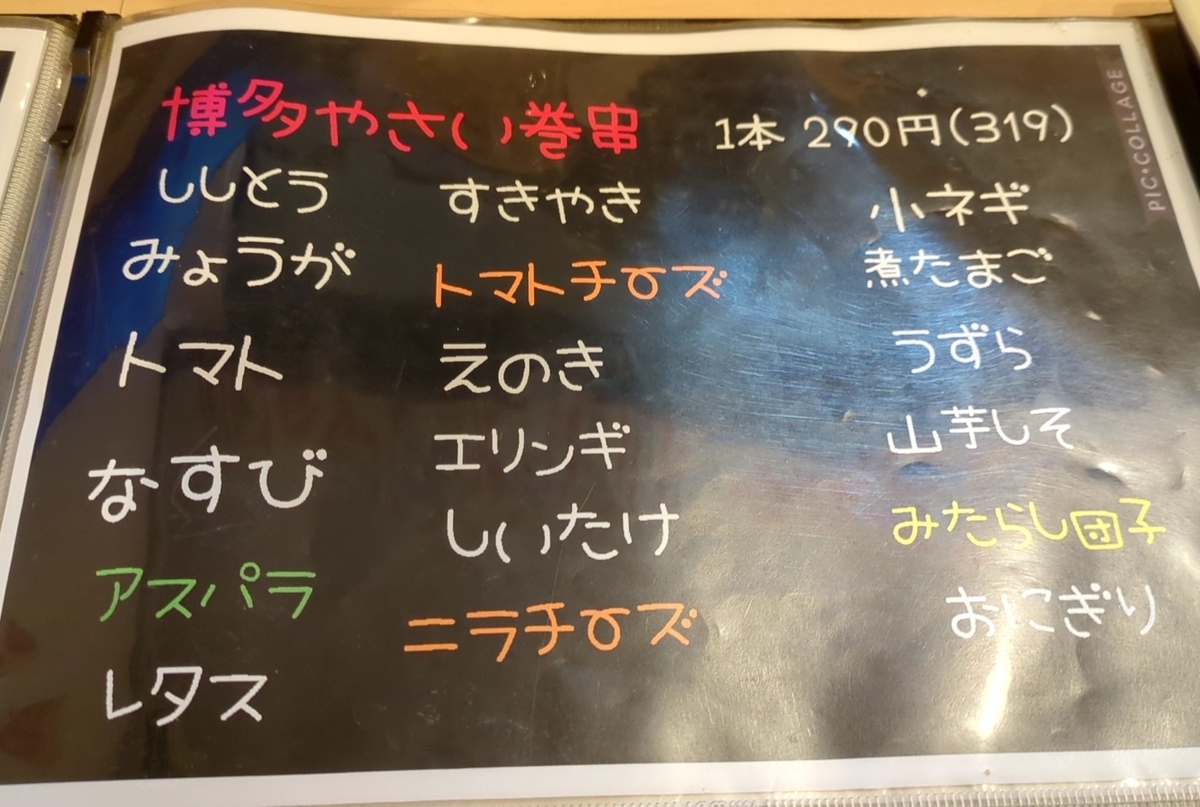 博多やさい巻串 1本 290円(319)
ししとう
みょうが
トマト
なすび
アスパラ
レタス
すきやき
トマトチーズ
えのき
エリンギ
しいたけ
ニラチーズ
小ネギ
煮たまご
うずら
山芋しそ
みたらし団子
おにぎり
PIC•COLLAGE